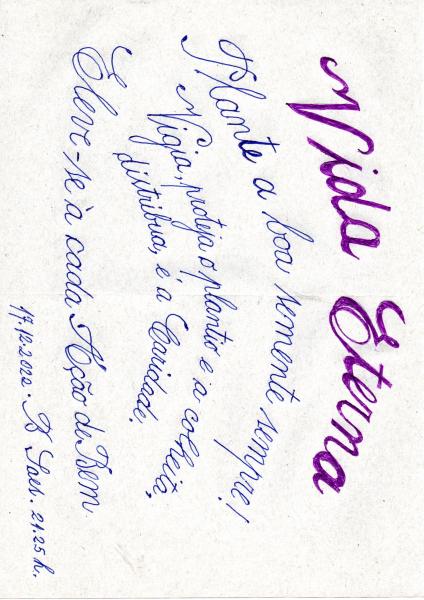 Vida Eterna
Plante a boa semente sempre!
Vigia, proteja o plantio e a colheita,
distribua, é a Caridade.
Eleve-se à cada Ação de Bem.
17.12.2022. A Saes. 21.25 h.